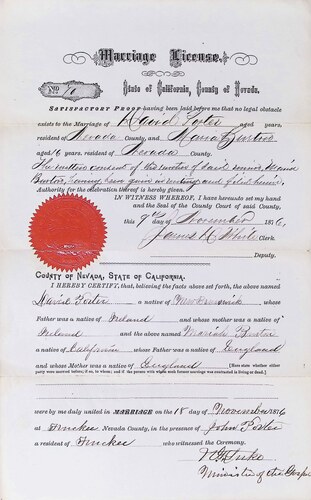 Marriage License.
No. 70
State of California, County of Nevada.
SATISFACTORY PROOF having been laid before me that no legal obstacle
exists to the Marriage of David Foster aged years,
resident of Nevada County, and Maria Burton
aged 16 years, resident of Nevada County.
The written consent of the mother of said minor, Maria
Burton, having been given in writing and filed herein,
Authority for the celebration thereof is hereby given.
IN WITNESS WHEREOF, I have hereunto set my hand
and the Seal of the County Court of said County,
this 7th day of November 1876,
James H. White Clerk.
Deputy.
COUNTY OF NEVADA, STATE OF CALIFORNIA.
I HEREBY CERTIFY, that, believing the facts above set forth, the above named
David Foster a native of New Brunswick whose
Father was a native of Ireland and whose mother was a native of
Ireland and the above named Mariah Burton
a native of California whose Father was a native of England
and whose Mother was a native of England (Here state whether either
party were married before, if so, to whom; and if the person with whom such former marriage was contracted is living or dead.)
were by me duly united in MARRIAGE on the 18 day of November 1876
at Truckee Nevada County, in the presence of John Foster
a resident of Truckee who witnessed the Ceremony.
Minister of the Gospel